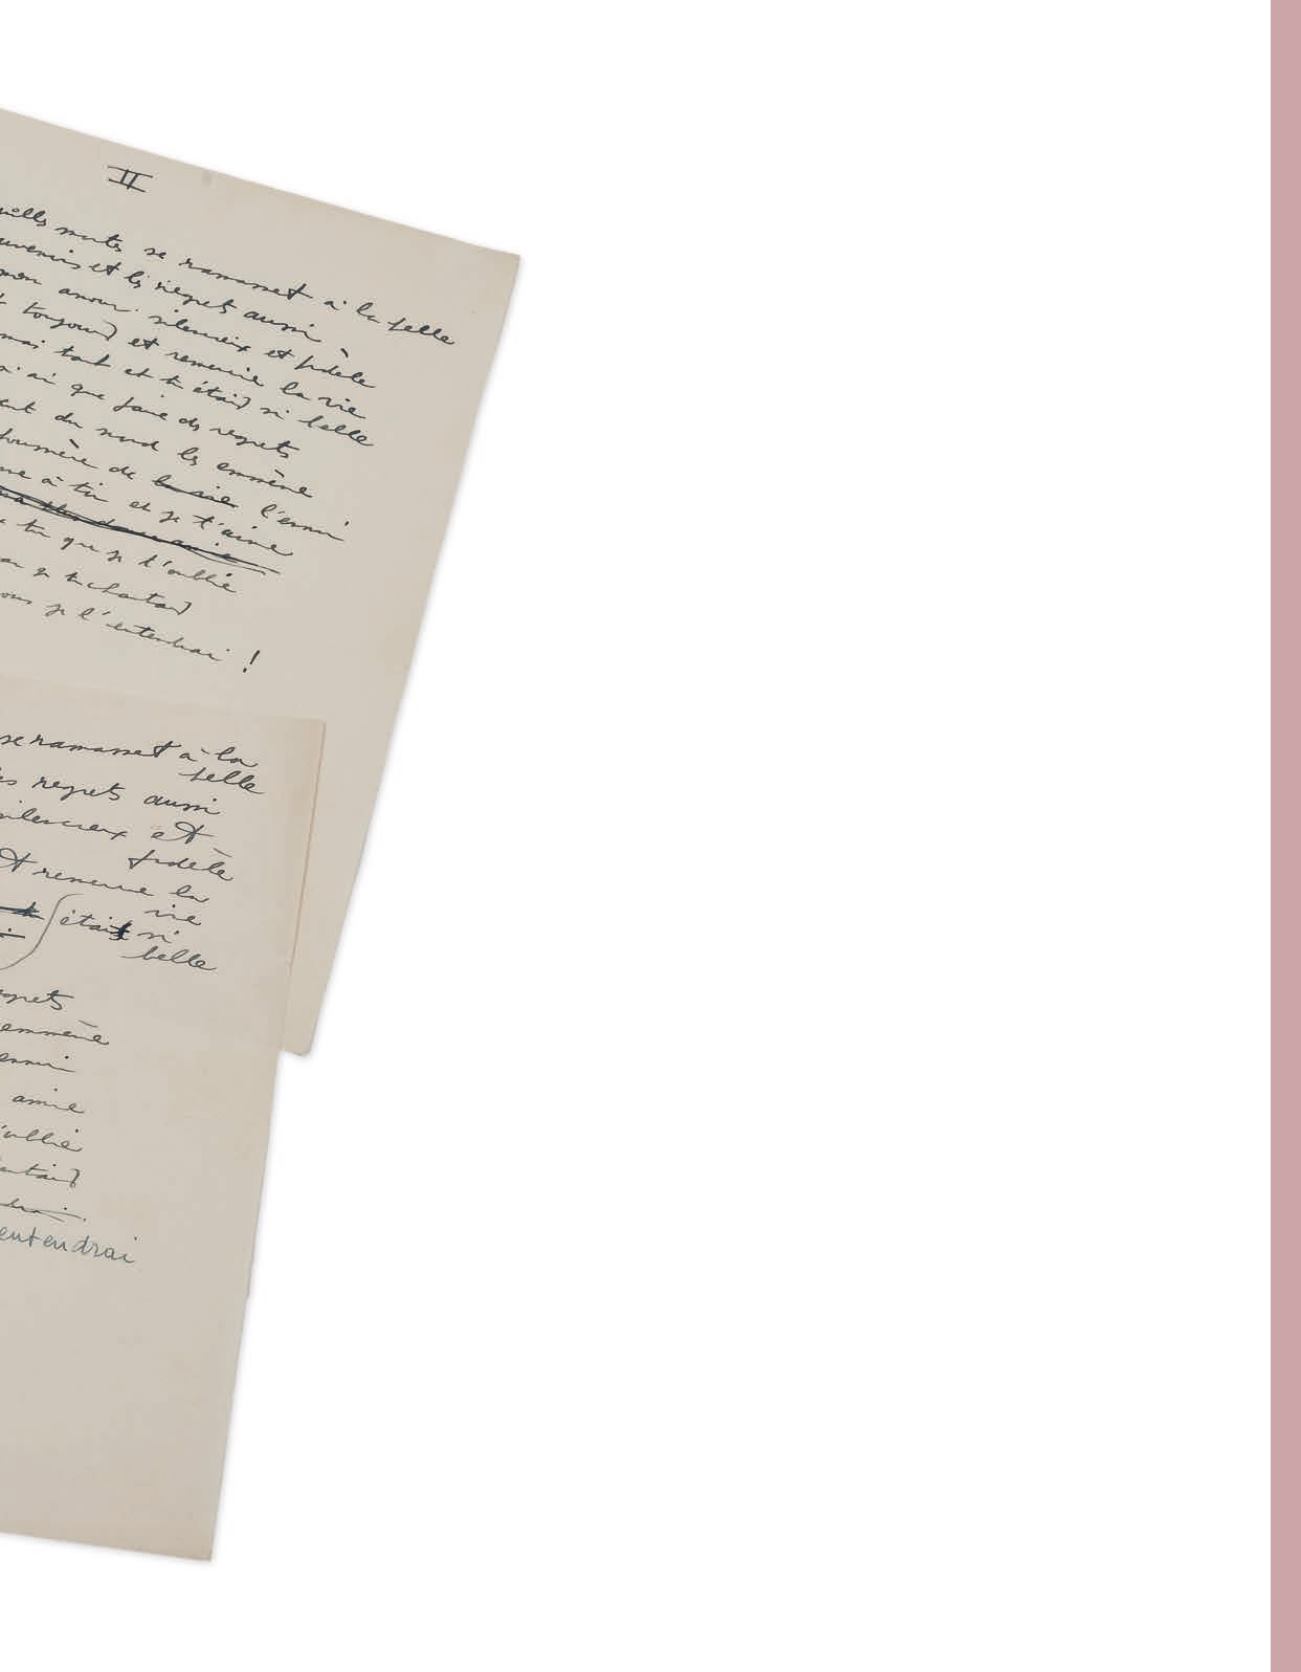 II
mortes se ramassent à la pelle
et les regrets aussi
mon amour silencieux et fidèle
toujours et remercie la vie
tant et tu étais si belle
n'ai que faire des regrets
vent du nord les emmène
de la vie l'ennui
à toi et je t'aime
tu que je t'oublie
que tu chantais
je l'entendrai !
se ramassent à la
pelle
les regrets aussi
silencieux et
fidèle
et remercie la
vie
étais si
belle
regrets
emmène
ennui
amie
oublie
entendrai